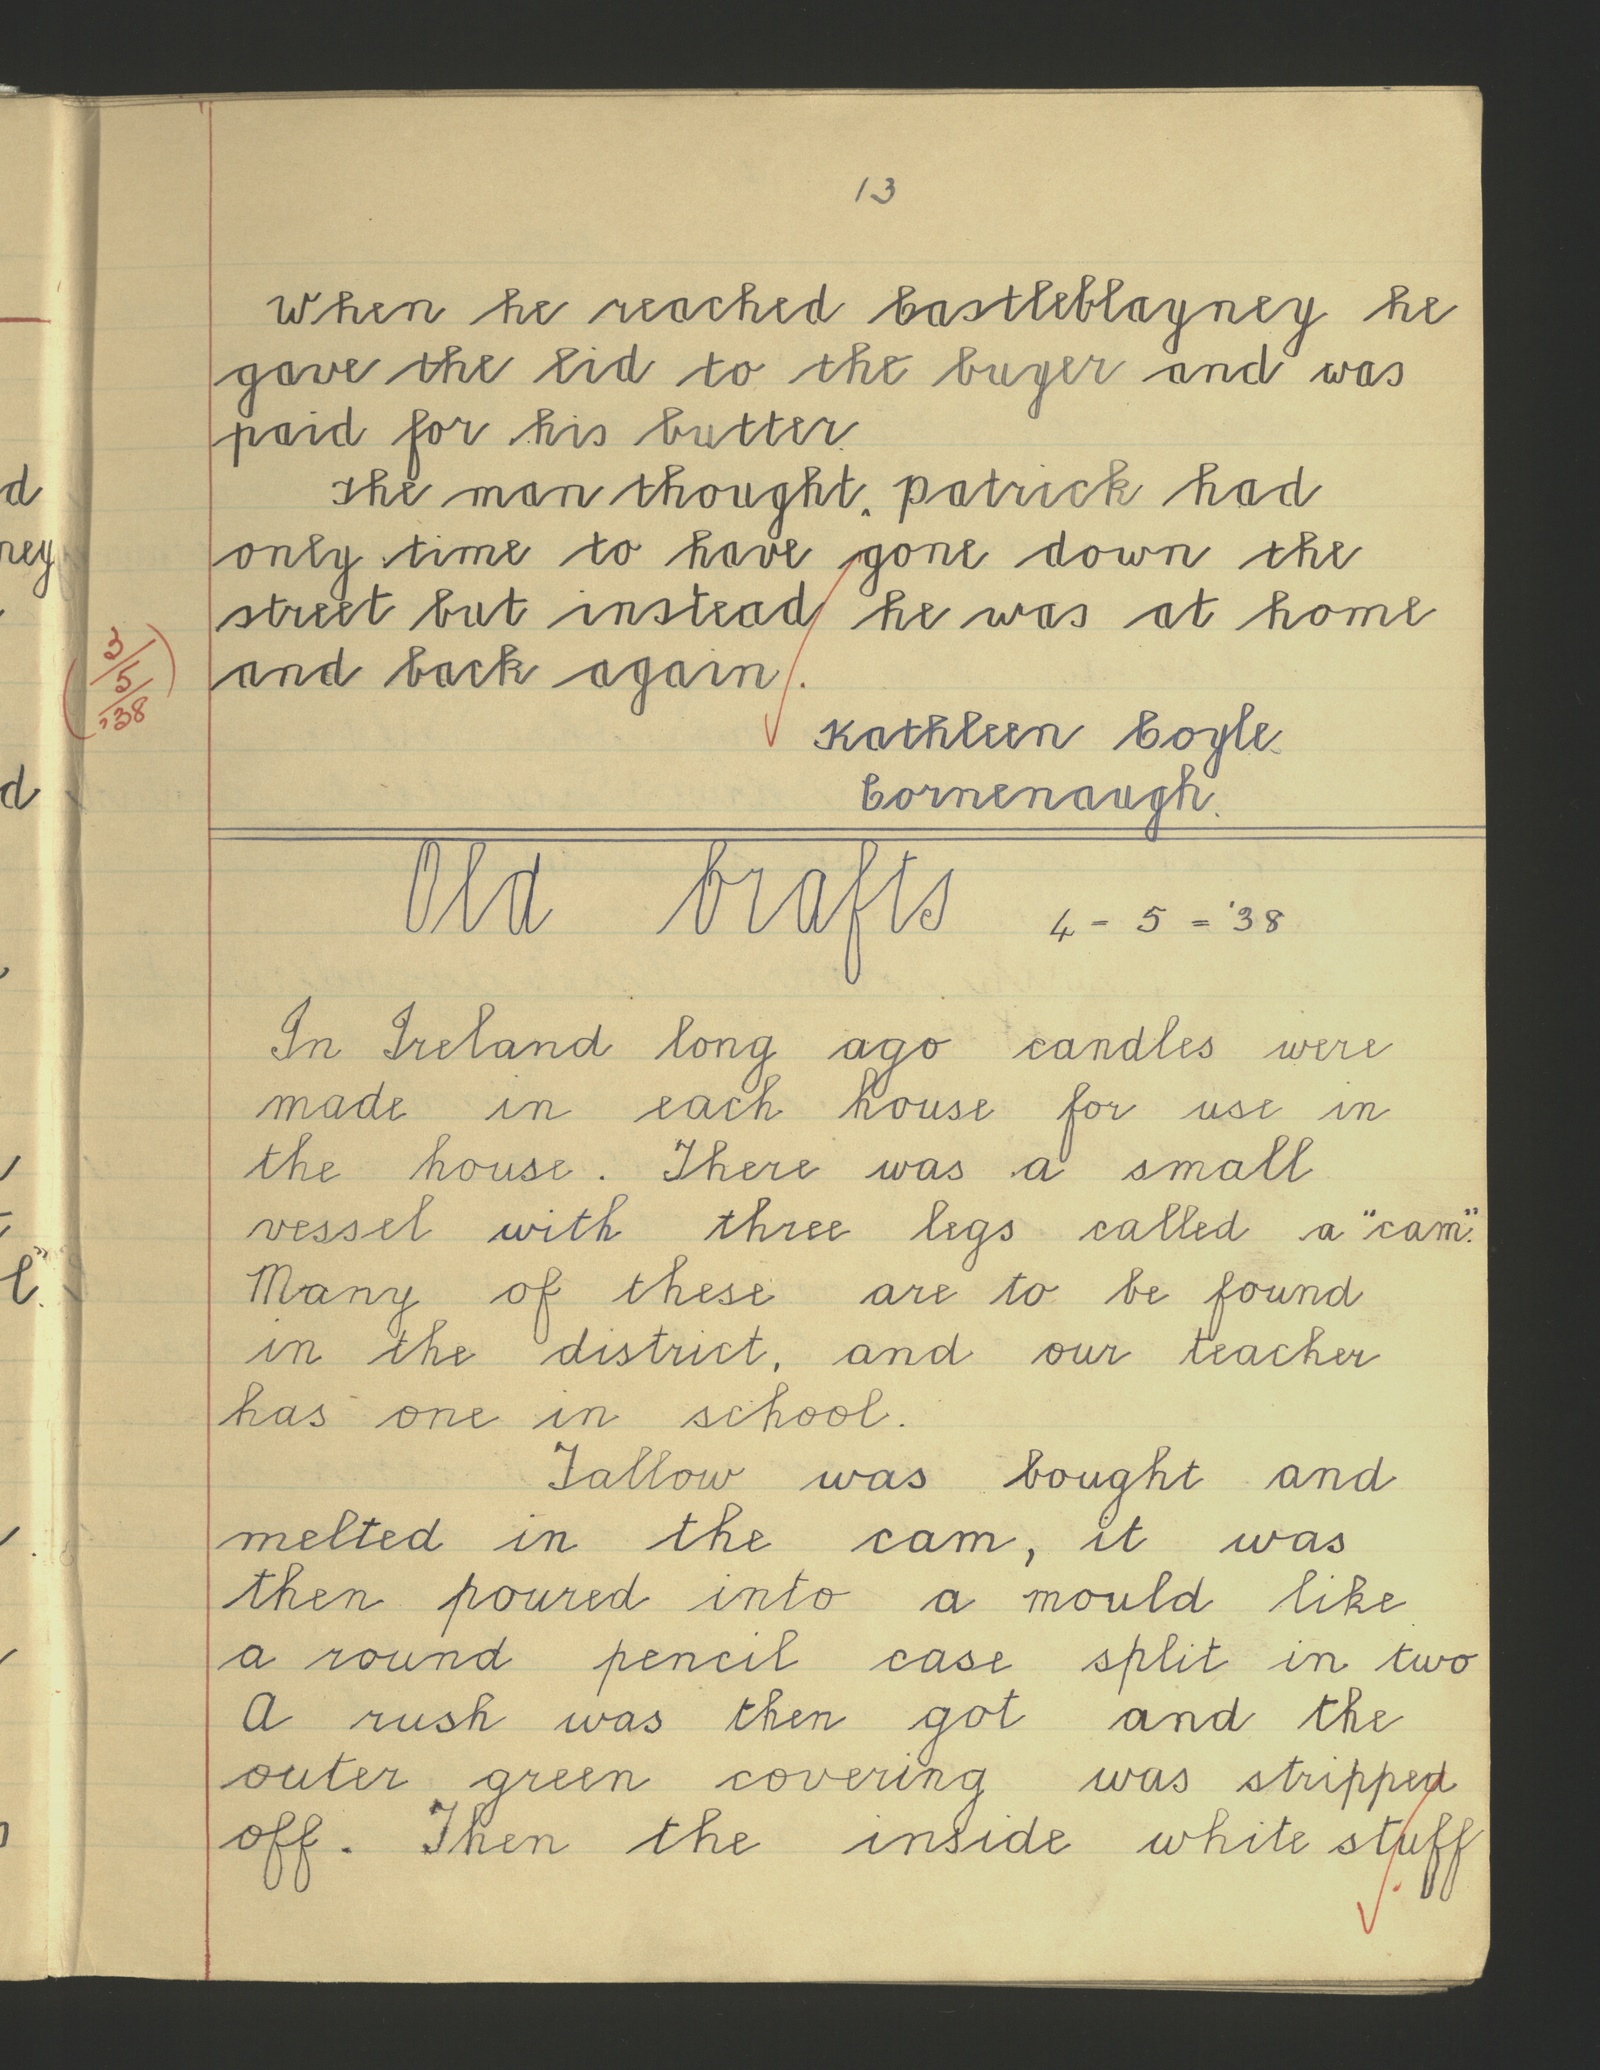 13
When he reached Castleblayney he
gave the lid to the buyer and was
paid for his butter.
The man thought, Patrick had
only time to have gone down the
street but instead he was at home
and back again.
3/5/'38
Kathleen Coyle.
Cornenaugh.
Old Crafts 4 - 5 = '38
In Ireland long ago candles were
made in each house for use in
the house. There was a small
vessel with three legs called a "cam".
Many of these are to be found
in the district, and our teacher
has one in school.
Tallow was bought and
melted in the cam, it was
then poured into a mould like
a round pencil case split in two
A rush was then got and the
outer green covering was stripped
off. Then the inside white stuff